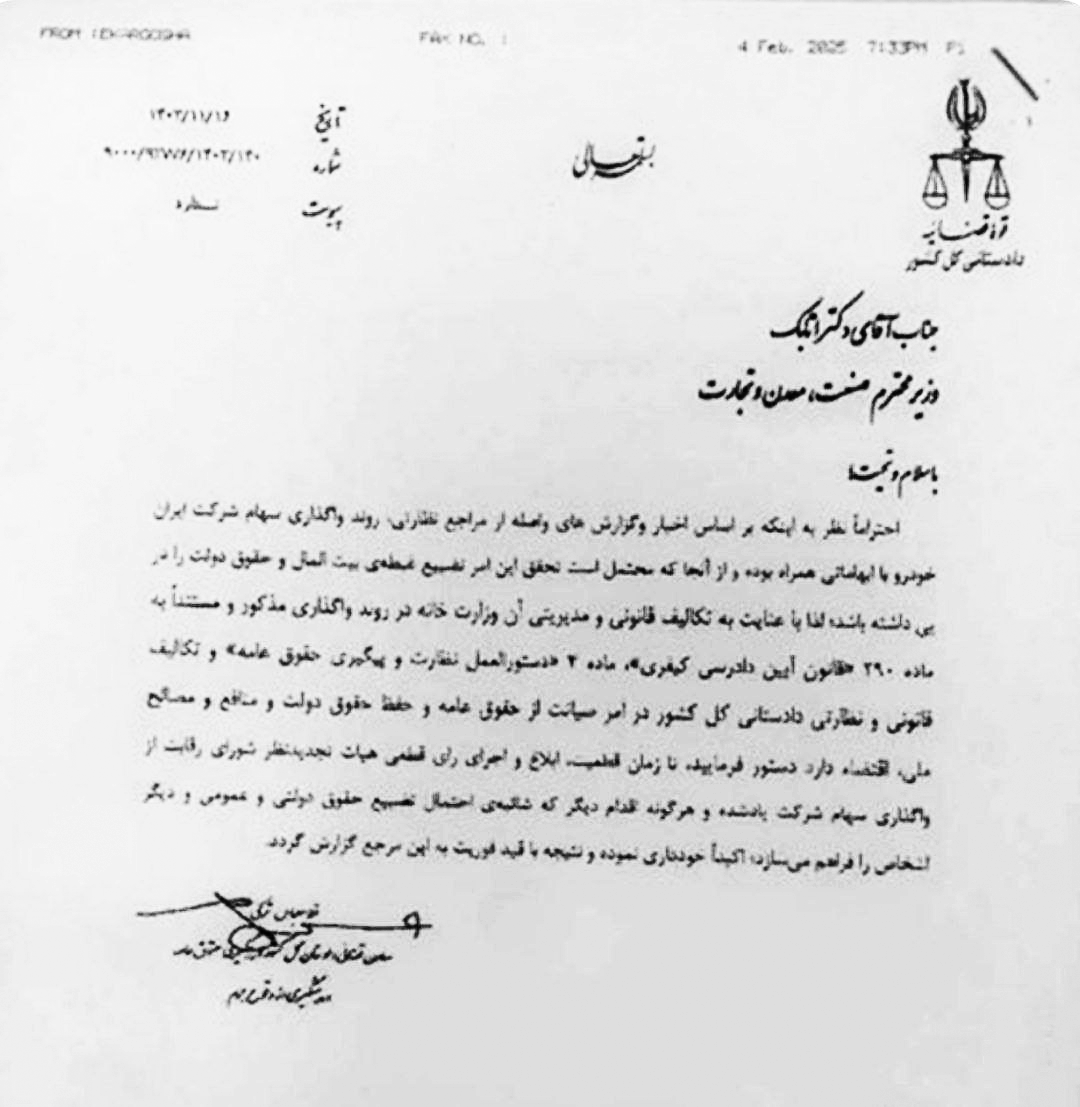 FROM :EKARGOSHA FAX NO. : 4 Feb. 2025 7:33PM P1
بسمه تعالی
قوه قضائیه
دادستانی کل کشور
تاریخ ۱۴۰۳/۱۱/۱۶
شماره
پیوست ندارد
جناب آقای دکتر اتابک
وزیر محترم صنعت، معدن و تجارت
با سلام و تحیت؛
احتراماً نظر به اینکه بر اساس اخبار وگزارش های واصله از مراجع نظارتی، روند واگذاری سهام شرکت ایران
خودرو با ابهاماتی همراه بوده و از آنجا که محتمل است تحقق این امر تضییع غبطه‌ی بیت المال و حقوق دولت را در
پی داشته باشد؛ لذا با عنایت به تکالیف قانونی و مدیریتی آن وزارت خانه در روند واگذاری مذکور و مستنداً به
ماده ۲۹۰ «قانون آیین دادرسی کیفری»، ماده ۲ «دستورالعمل نظارت و پیگیری حقوق عامه» و تکالیف
قانونی و نظارتی دادستانی کل کشور در امر صیانت از حقوق عامه و حفظ حقوق دولت و منافع و مصالح
ملی، اقتضاء دارد دستور فرمایید، تا زمان قطعیت، ابلاغ و اجرای رای قطعی هیات تجدیدنظر شورای رقابت از
واگذاری سهام شرکت یادشده و هرگونه اقدام دیگر که شائبه‌ی احتمال تضییع حقوق دولتی و عمومی و دیگر
اشخاص را فراهم می‌سازد؛ اکیداً خودداری نموده و نتیجه با قید فوریت به این مرجع گزارش گردد.
غلامعباس ترکی
معاون قضائی دادستان کل کشور حقوق عامه
و پیشگیری از وقوع جرم